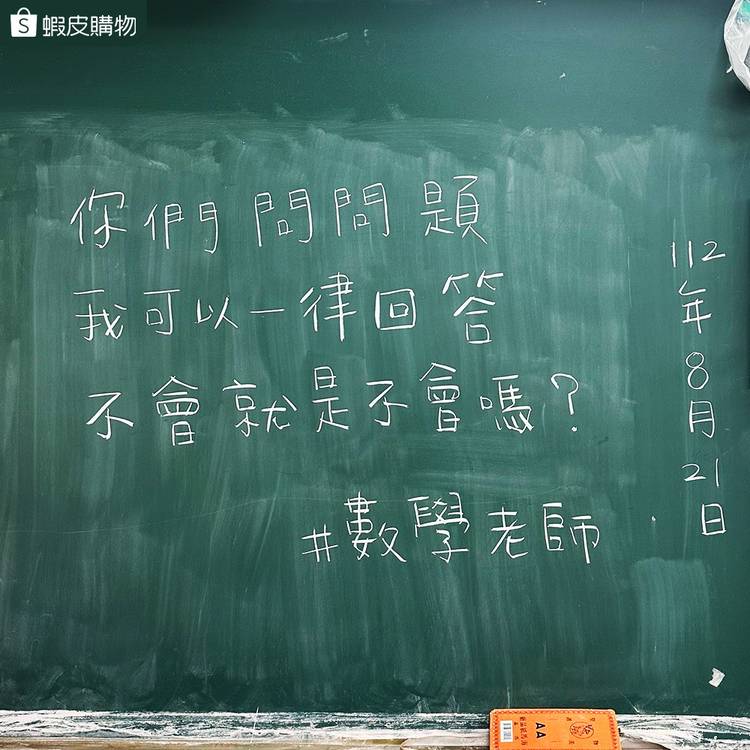 蝦皮購物
你們問問題
我可以一律回答
不會就是不會嗎?
#數學老師
112年8月21日
AA